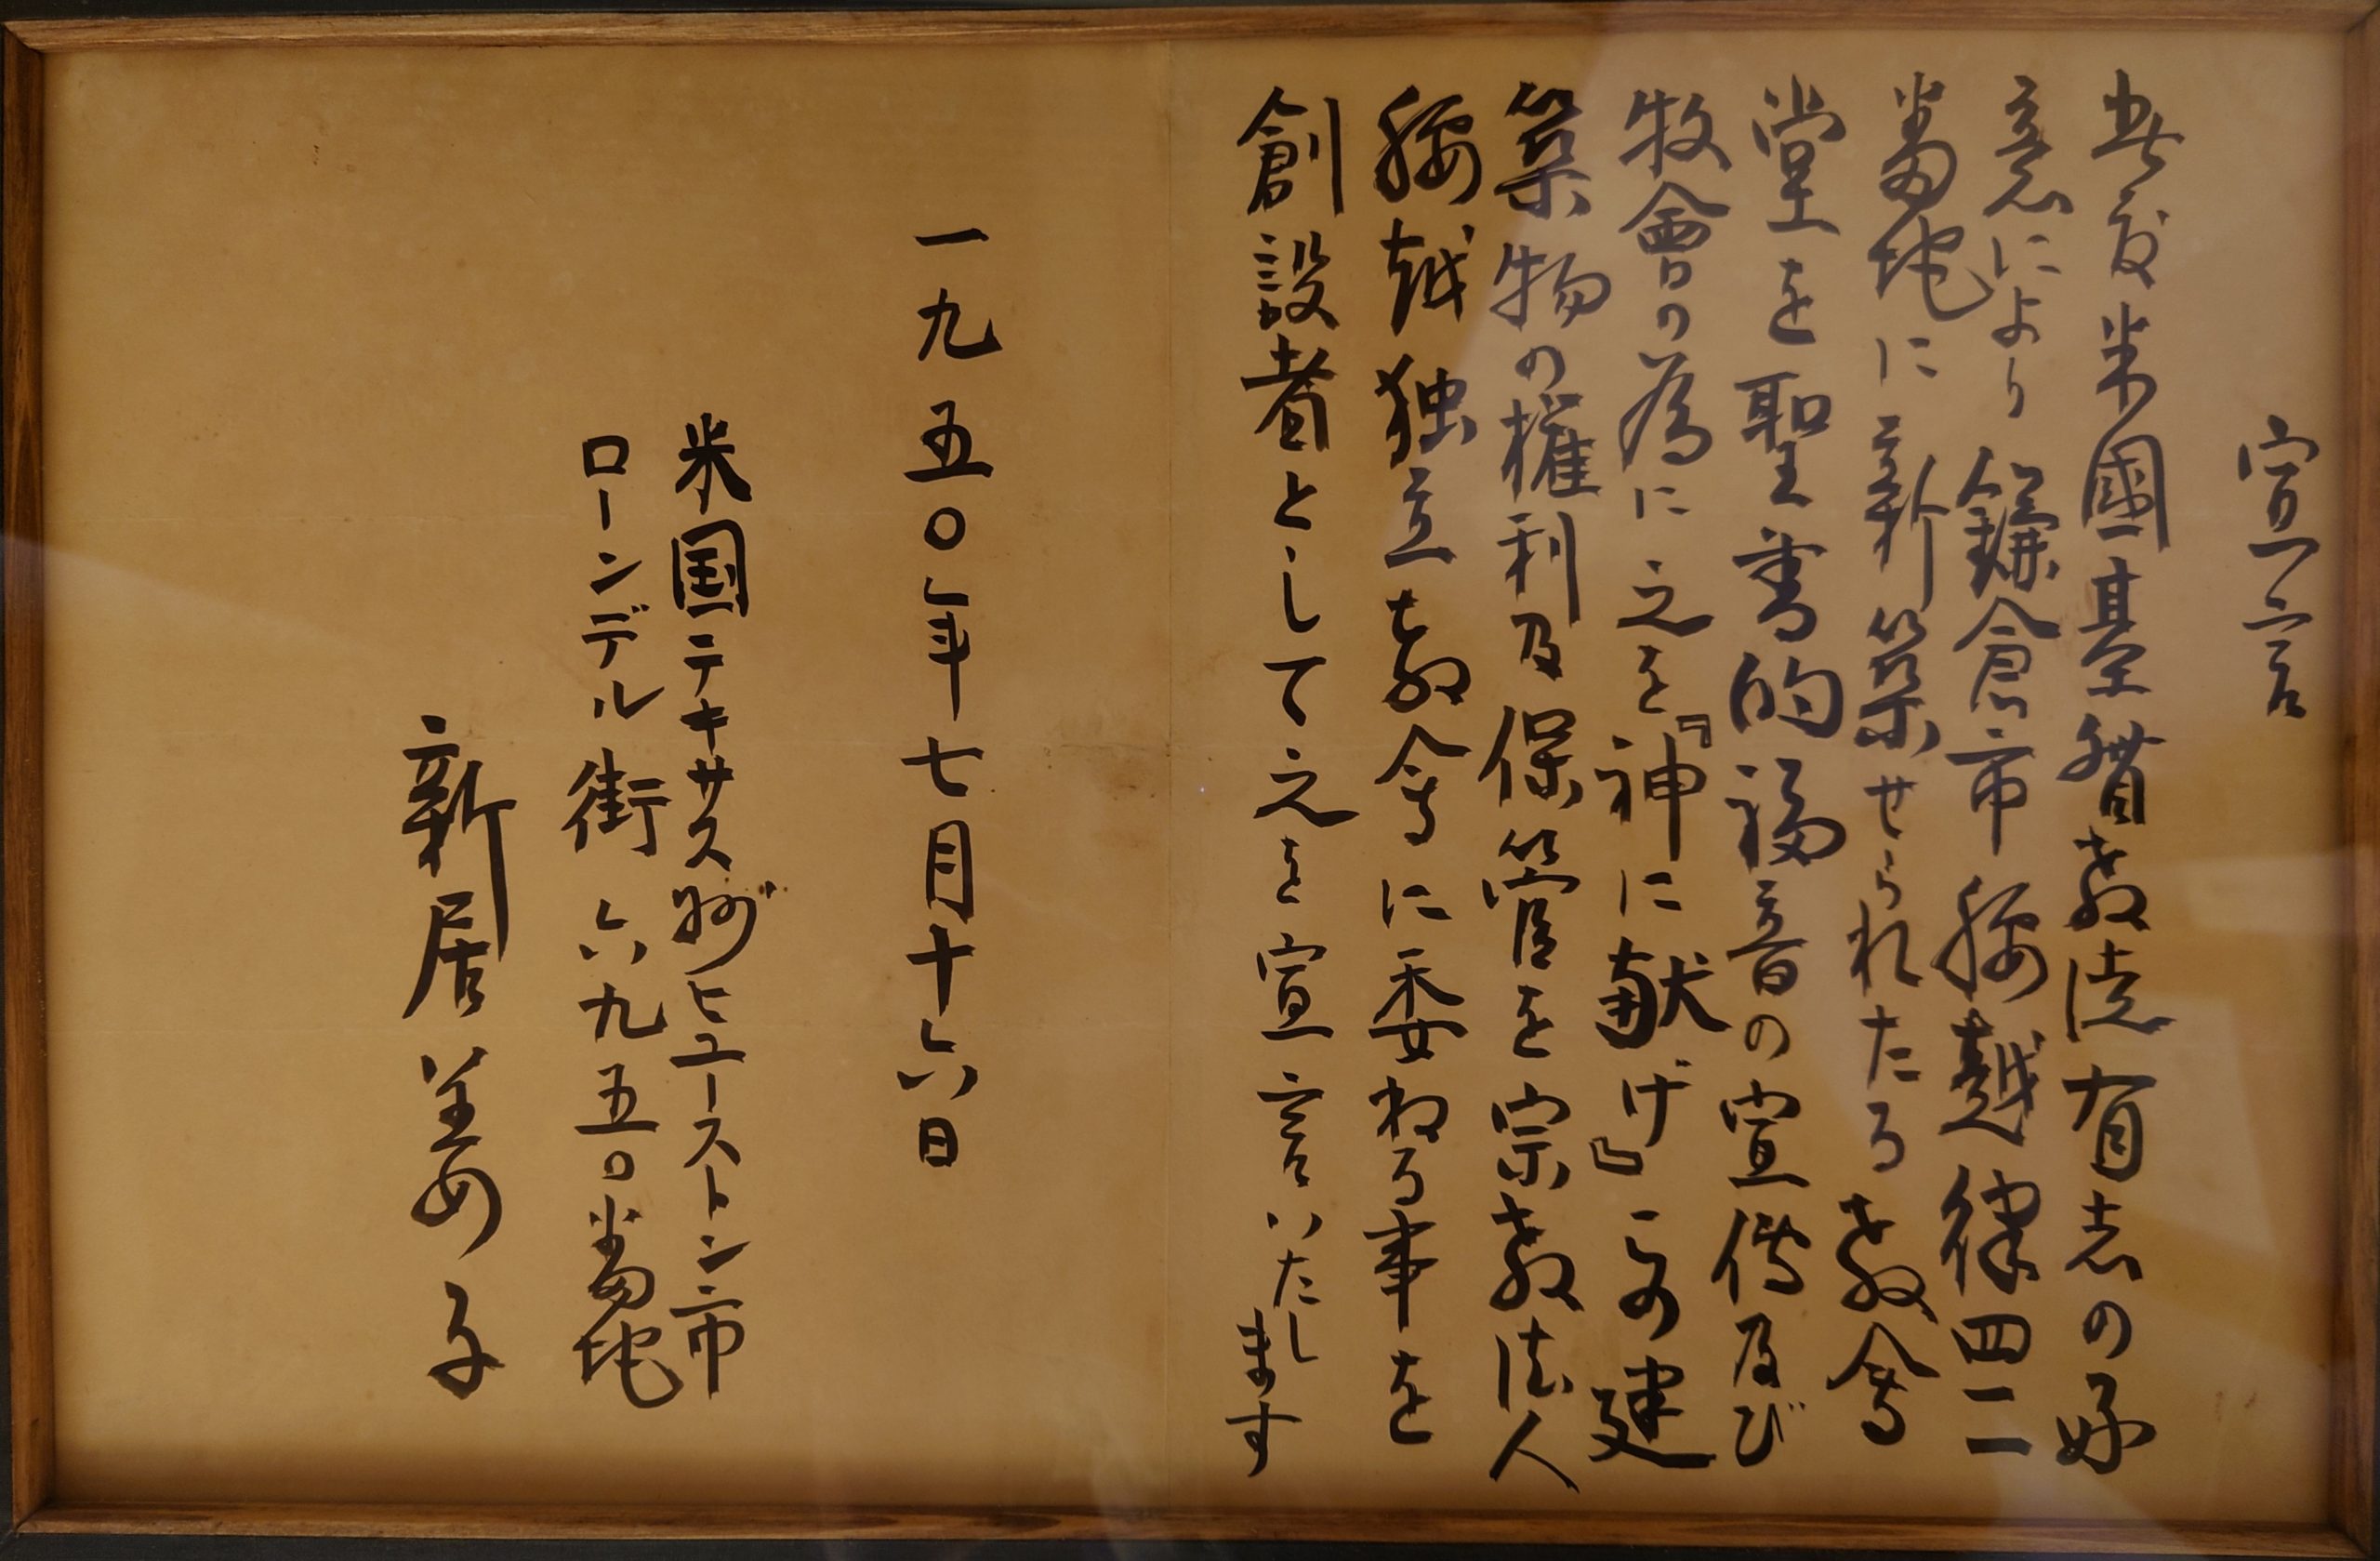 宣言
此度米國基督教徒有志の好
意により鎌倉市腰越津四二
番地に新築せられたる教會
堂を聖書的福音の宣傳及び
牧會の為に之を『神に献げ』その建
築物の権利及保管を宗教法人
腰越独立教会に委ねる事を
創設者として之を宣言いたします
一九五〇年七月十六日
米国テキサス州ヒューストン市
ローンデル街六九五〇番地
新居姜子